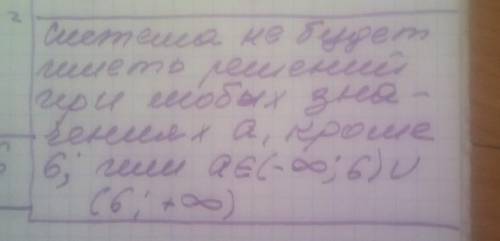 система не будет
иметь решений
при любых зна-
чениях а, кроме
6; или а∈(-∞;6)∪
(6; +∞)